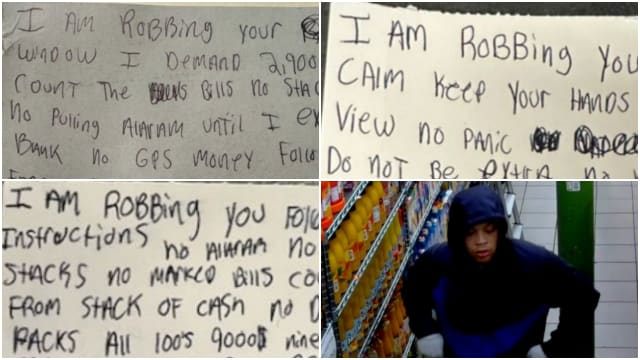 I AM ROBBING your
window I DEMAND 2,900
COUNT THE Bills no STAC
No Pulling AlARAM UNTIL I ex
BANK no GPS MONEY Follo
I AM ROBBING YOU
CALM KEEP YOUR HANDS
View no PANIC
DO NOT BE EXTRA no
I AM ROBBING YOU Follo
Instructions no AlARAM NO
STACKS no MARKED Bills co
FROM STACK OF CASH no D
PACKS All 100's 9000$ nine